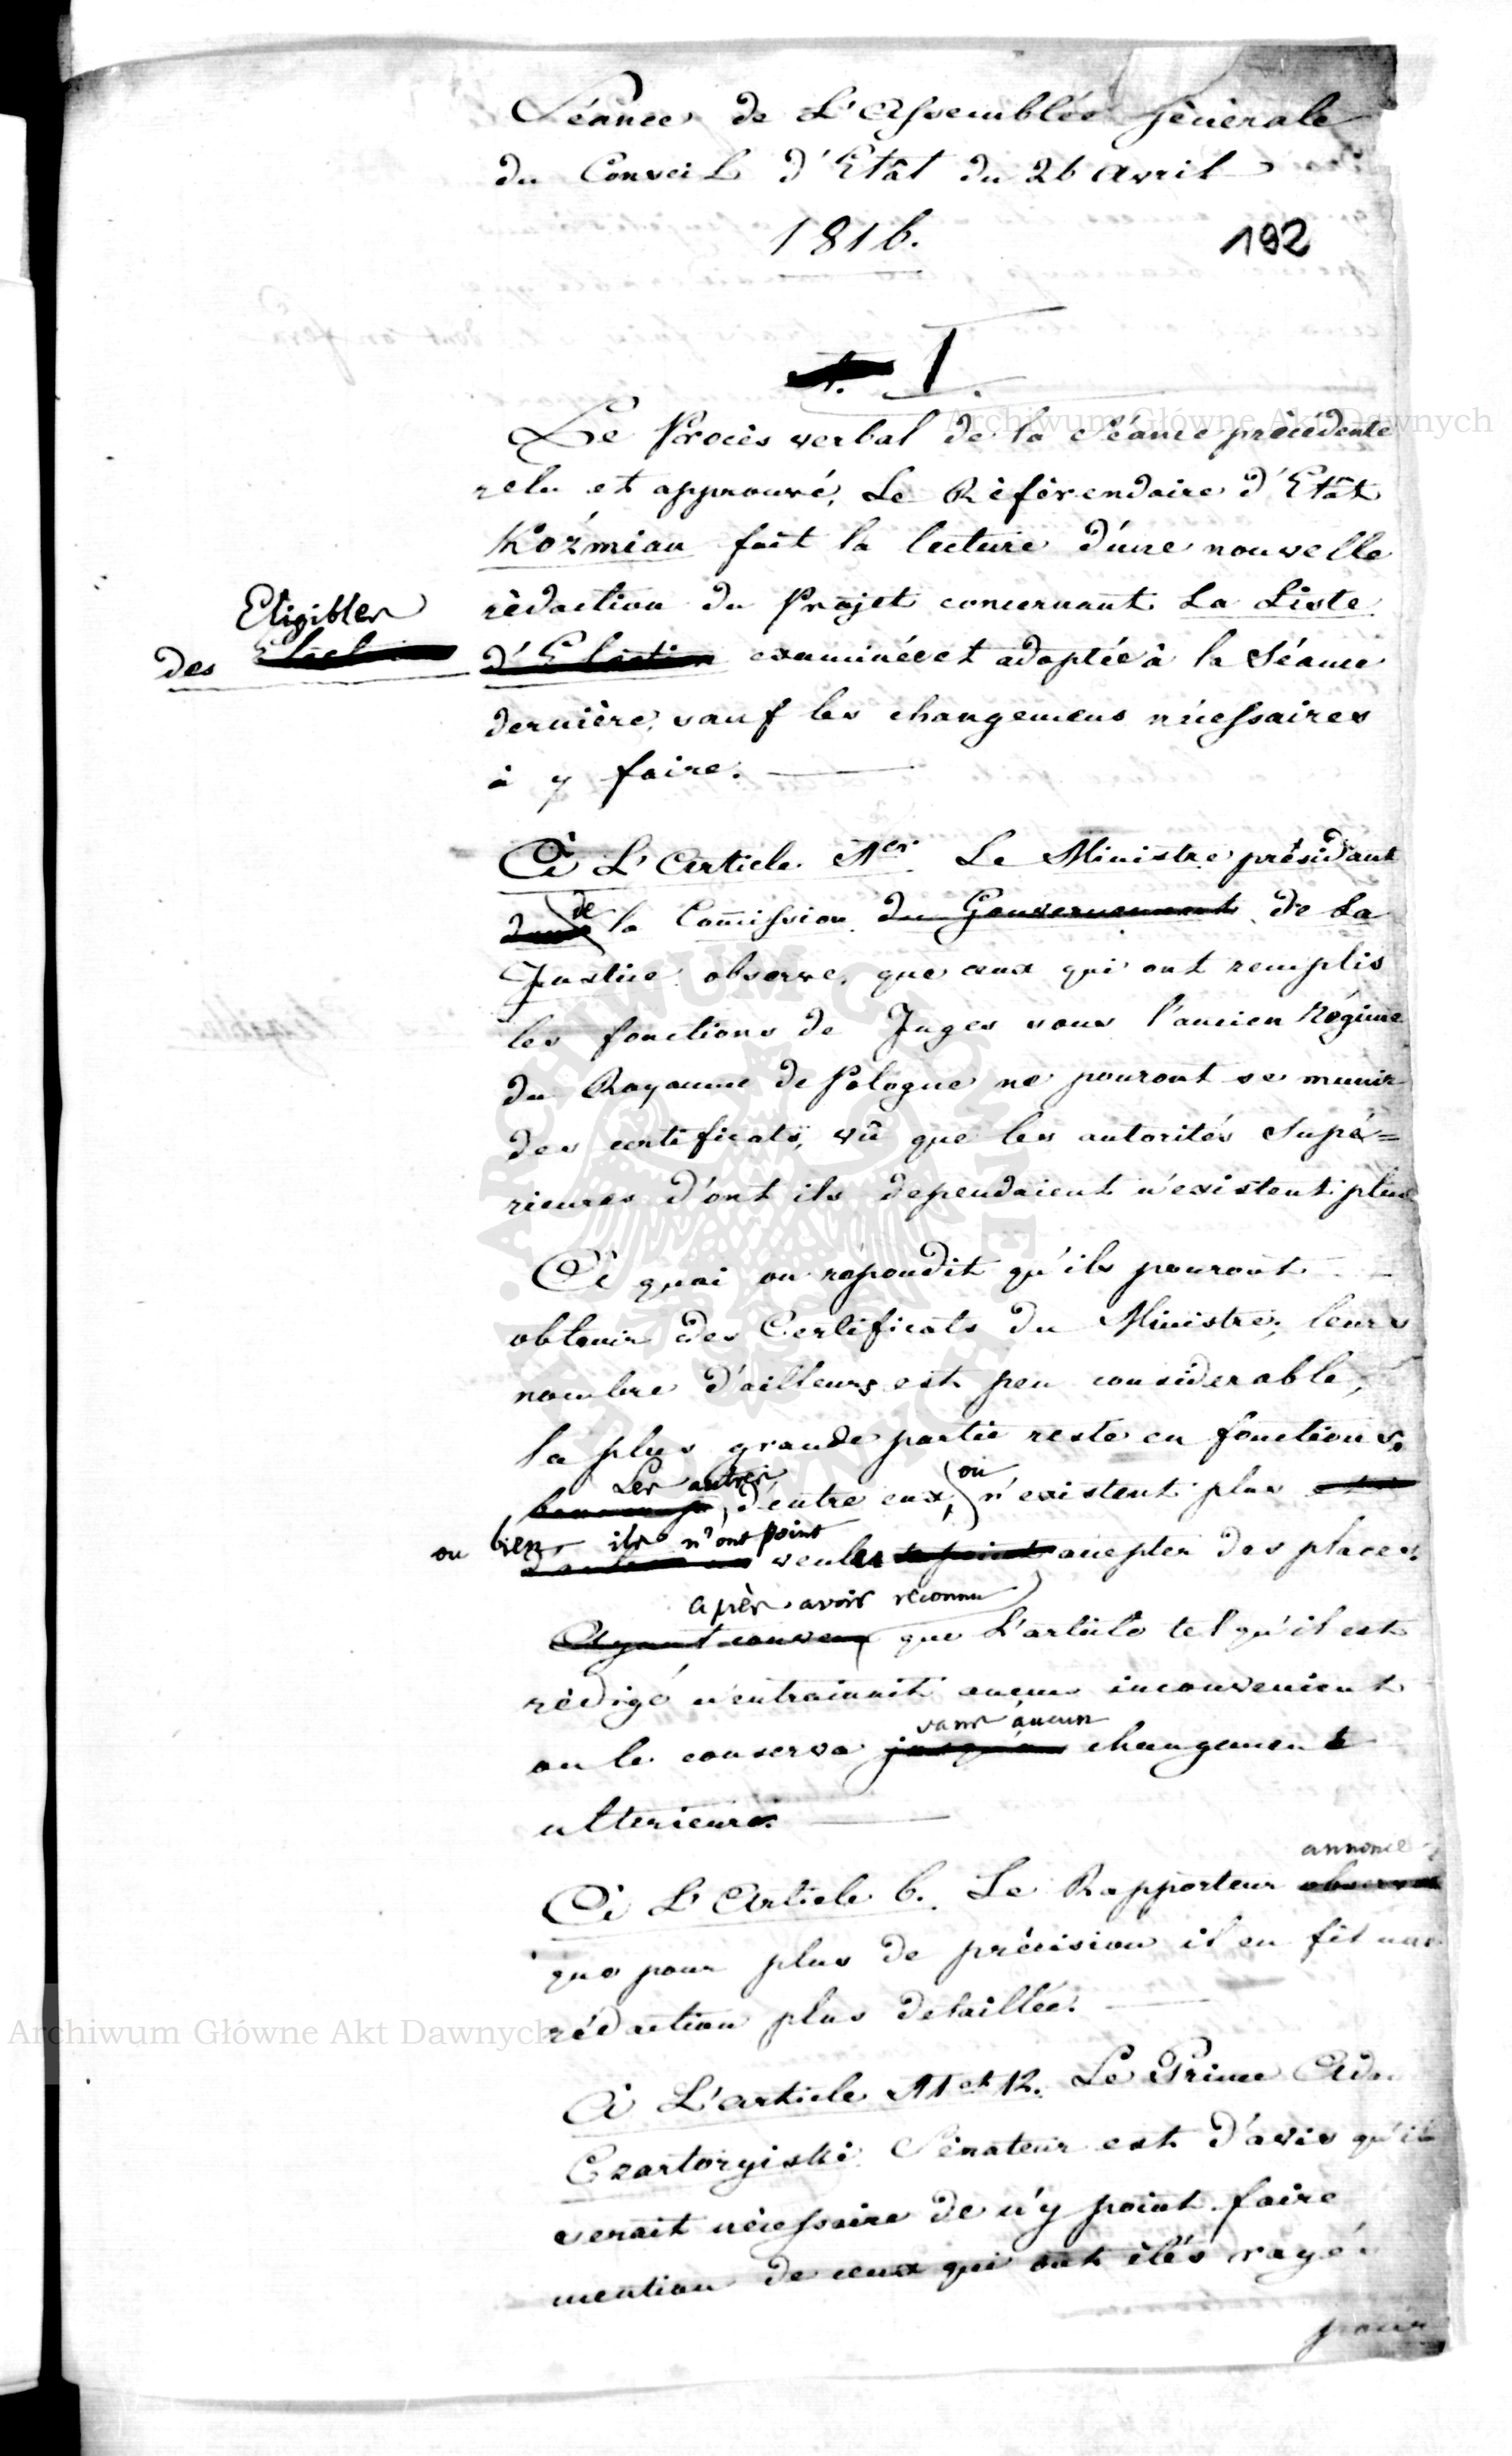 Séance de L'Assemblée générale
du Conseil d'Etât du 26 Avril
1816.
192
I.
Le Procès verbal de la Séance précédente
relu et approuvé, Le Réferendaire d'Etât
Kozmian fait la lecture d'une nouvelle
rèdaction du Projet concernant La Liste
Eligibles
des
d'Election examinée et adoptée à la Séance
dernière, sauf les changemens nécessaires
à y faire.
À L'Article 1er. Le Ministre présidant
de
la Com̃ission du Gouvernement de La
Justice observe, que ceux qui ont remplis
les fonctions de Juges sous l'ancien Régime
du Royaume de Pologne ne pouront se munir
des certificats, vû que les autorités Supé=
rieures d'ont ils dependaient n'existent plus
À quoi on répondit qu'ils pouront
obtenir des Certificats du Ministre, leurs
nombre d'ailleurs est peu considerable,
la plus grande partie reste en fonctions.
Les autres ou
beaucoup d'entre eux, n'existent plus
ou bien ils n'ont point
veulu accepter des places.
après avoir reconnu
Ayant convenu que L'article tel qu'il est
rèdigé n'entrainait aucun inconvenient
sans aucun
on le conserva changement
ulterieur.
annonce
À L'Article 6. Le Rapporteur observe
que pour plus de précision il en fit une
rédaction plus detaillée.
À L'article 11 et 12. Le Prince Adam
Czartoryiski Sénateur est d'avis qu'il
serait nècessaire de n'y point faire
mention de ceux qui ont étés rayés
pour
Archiwum Główne Akt Dawnych
Archiwum Główne Akt Dawnych
ARCHIWUM GŁÓWNE AKT DAWNYCH